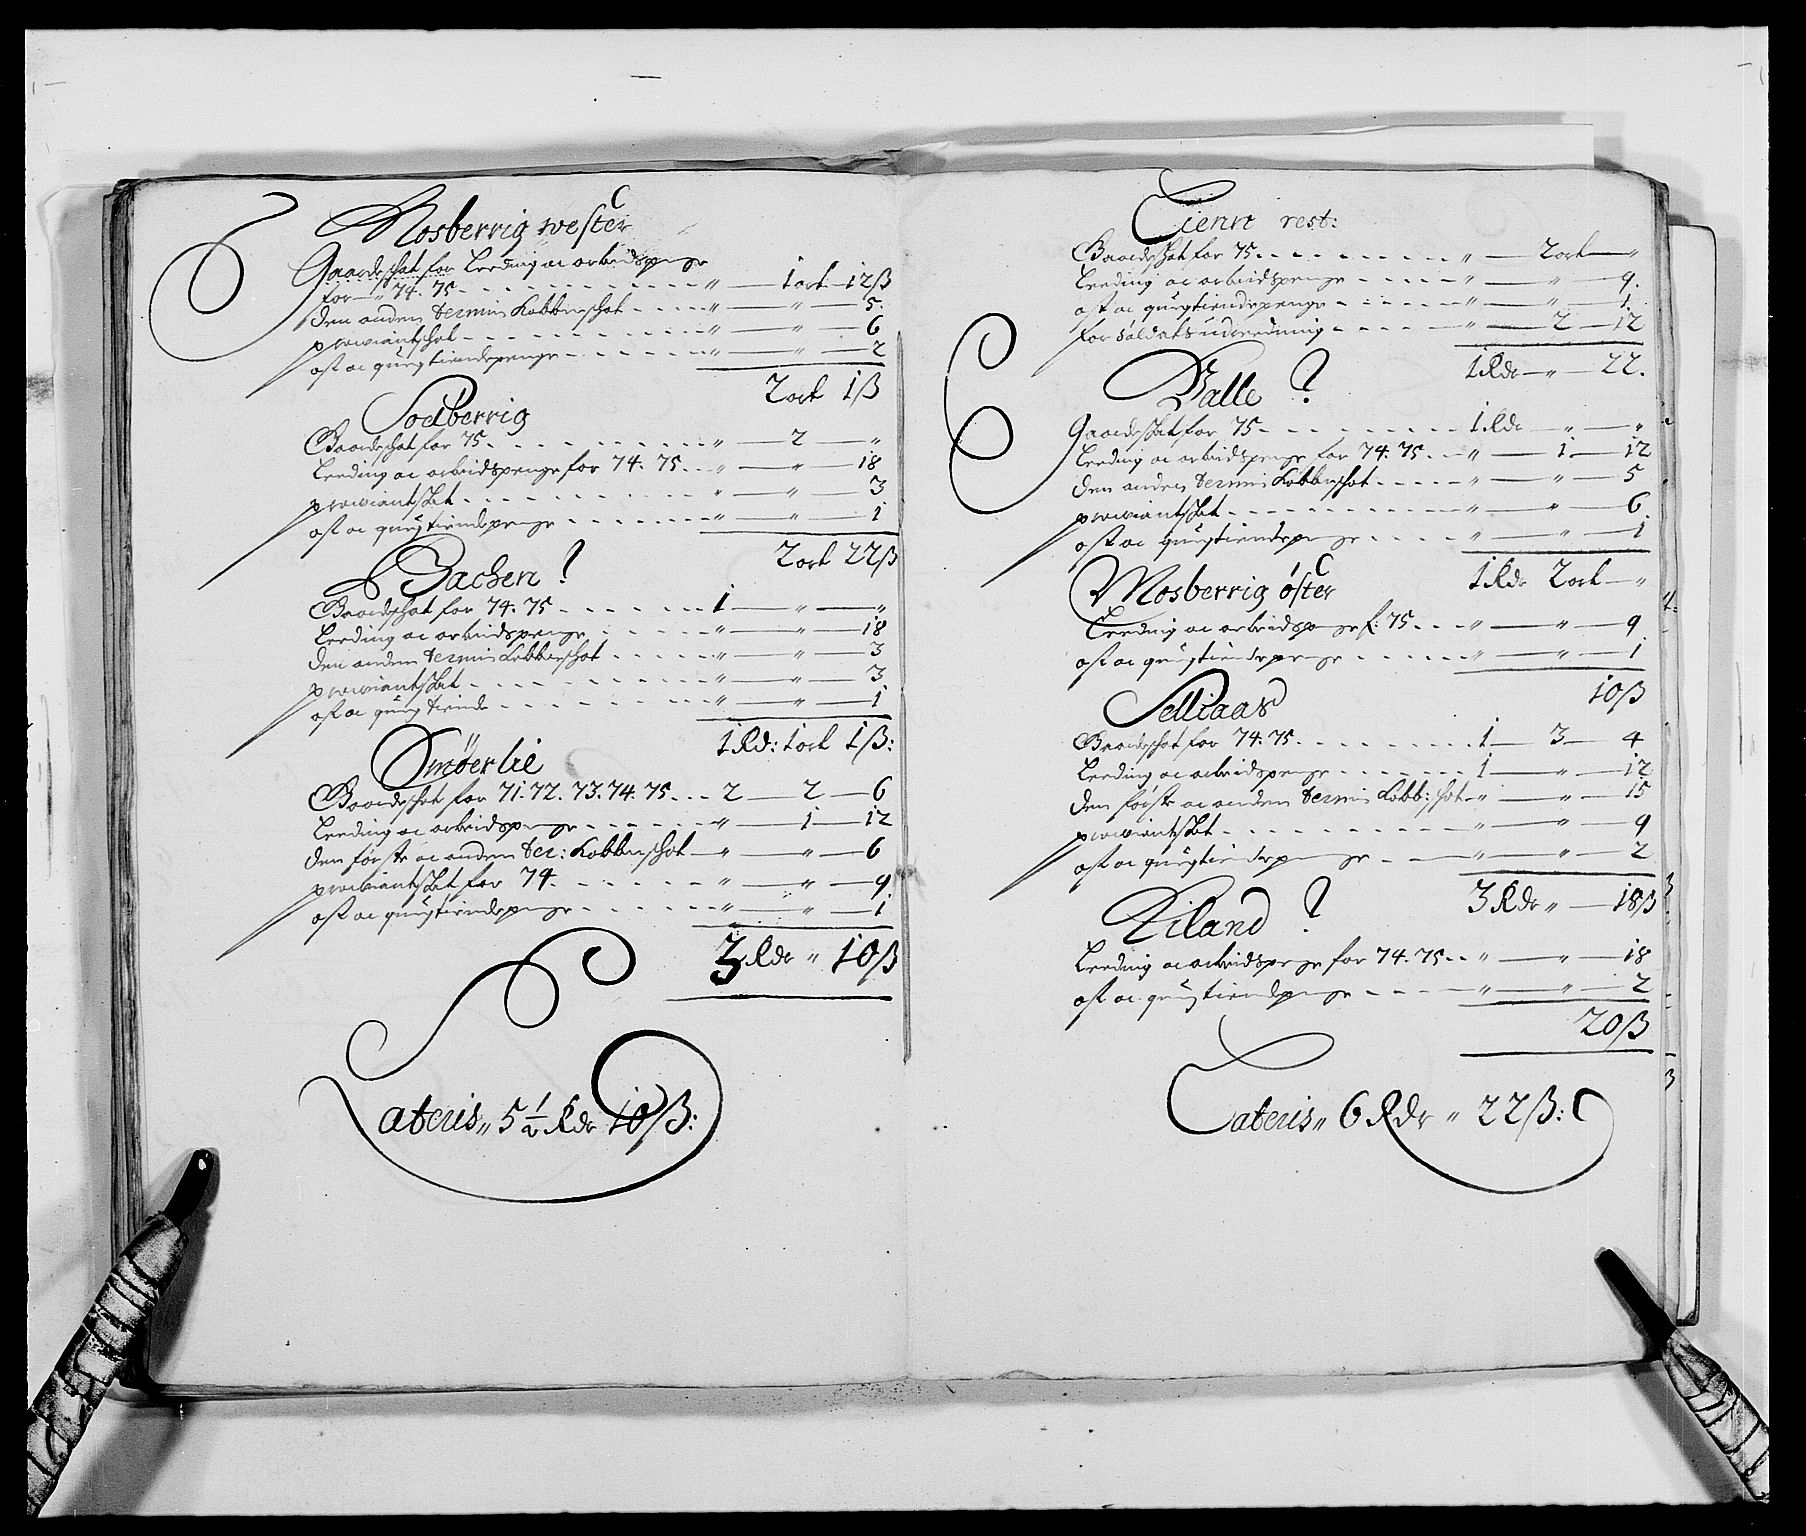 Mosberrig wester
Gaardschat for Leeding oc arbeidspenge
for " 74. 75 " 1 ort 12 ß
den anden termin Kobberschat " " 5
proviantschat " " 6
ost oc qurgtiendepenge " " 2
2 ort 1 ß
Sodberrig
Gaardschat for 75 " 2 "
Leeding oc arbeidspenge for 74. 75 " " 18
proviantschat " " 3
ost oc qurgtiendepenge " " 1
2 ort 22 ß
Bachen
Gaardschat for 74. 75 1 " "
Leeding oc arbeidspenge " " 18
den anden termin Kobberschat " " 3
proviantschat " " 3
ost oc qurgtiende " " 1
1 Rd: 1 ort 1 ß:
Smöerlie
Gaardschat for 71. 72. 73. 74. 75 2 2 6
Leeding oc arbeidspenge " 1 12
den første oc anden ter: Kobberschat " " 6
proviantschat for 74. " " 9
ost oc qurgtiendepenge " " 1
3 Rdr " 10 ß
Lateris " 5 1/2 Rdr 10 ß:
Tienn rest:
Gaardschat for 75 " 2 ort "
Leeding oc arbeidspenge " " 9.
ost oc qurgtiendepenge " " 1.
for Soldats udreedning " 2 12
1 Rdr " 22.
Valle
Gaardschat for 75 1 Rdr " "
Leeding oc arbeidspenge for 74. 75 " 1 12
den anden termin Kobberschat " " 5
proviantschat " " 6
ost oc qurgtiendepenge " " 1
1 Rdr 2 ort "
Mosberrig öster
Leeding oc arbeidspenge f. 75 " " 9
ost oc qurgtiendepenge " " 1
10 ß
Selliaas
Gaardschat for 74. 75 1 3 4
Leeding oc arbeidspenge 1 " 12
den første oc anden termin Kobb: schat " " 15
proviantschat " " 9
ost oc qurgtiendepenge " " 2
3 Rdr " 18 ß
Eiland
Leeding oc arbeidspenge for 74. 75 " " 18
ost oc qurgtiendepenge " " 2
20 ß
Lateris " 6 Rdr " 22 ß: